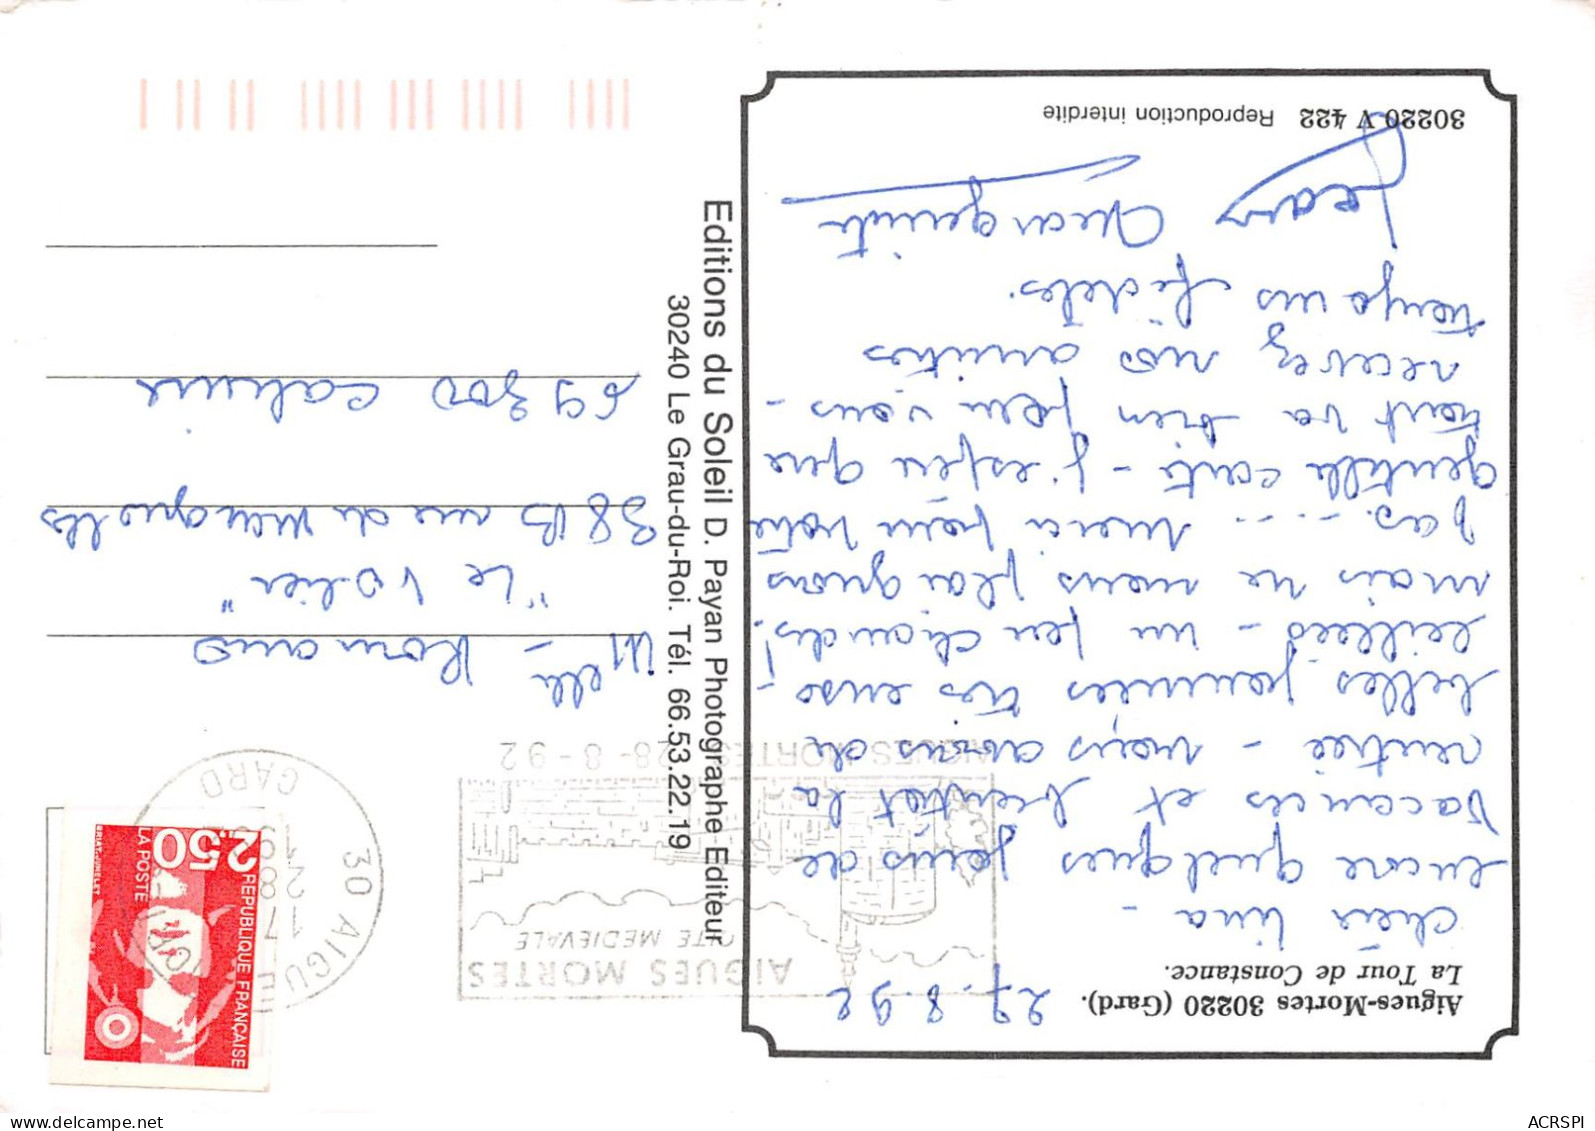 Aigues-Mortes 30220 (Gard).
La Tour de Constance.
27.8.92
Chère Lina -
encore quelques jours de
vacances et bientôt la
rentrée - nous avons de
belles journées très enso-
leillées - un peu chaudes!
mais ne nous plaignons
pas..... merci pour votre
gentille carte - j'espère que
tout va bien pour vous -
recevez nos amitiés
toujours fidèles.
Jean Marguerite
30220 V 422 Reproduction interdite
Editions du Soleil D. Payan Photographe Editeur
30240 Le Grau-du-Roi. Tél. 66.53.22.19
AIGUES MORTES
CITE MEDIEVALE
AIGUES MORTES 28-8-92
30 AIGUES
17
28
19
GARD
REPUBLIQUE FRANÇAISE
2,50
LA POSTE
Melle Romans
"Le Volier"
38 B rue du
69300 Caluire
ACRSPI